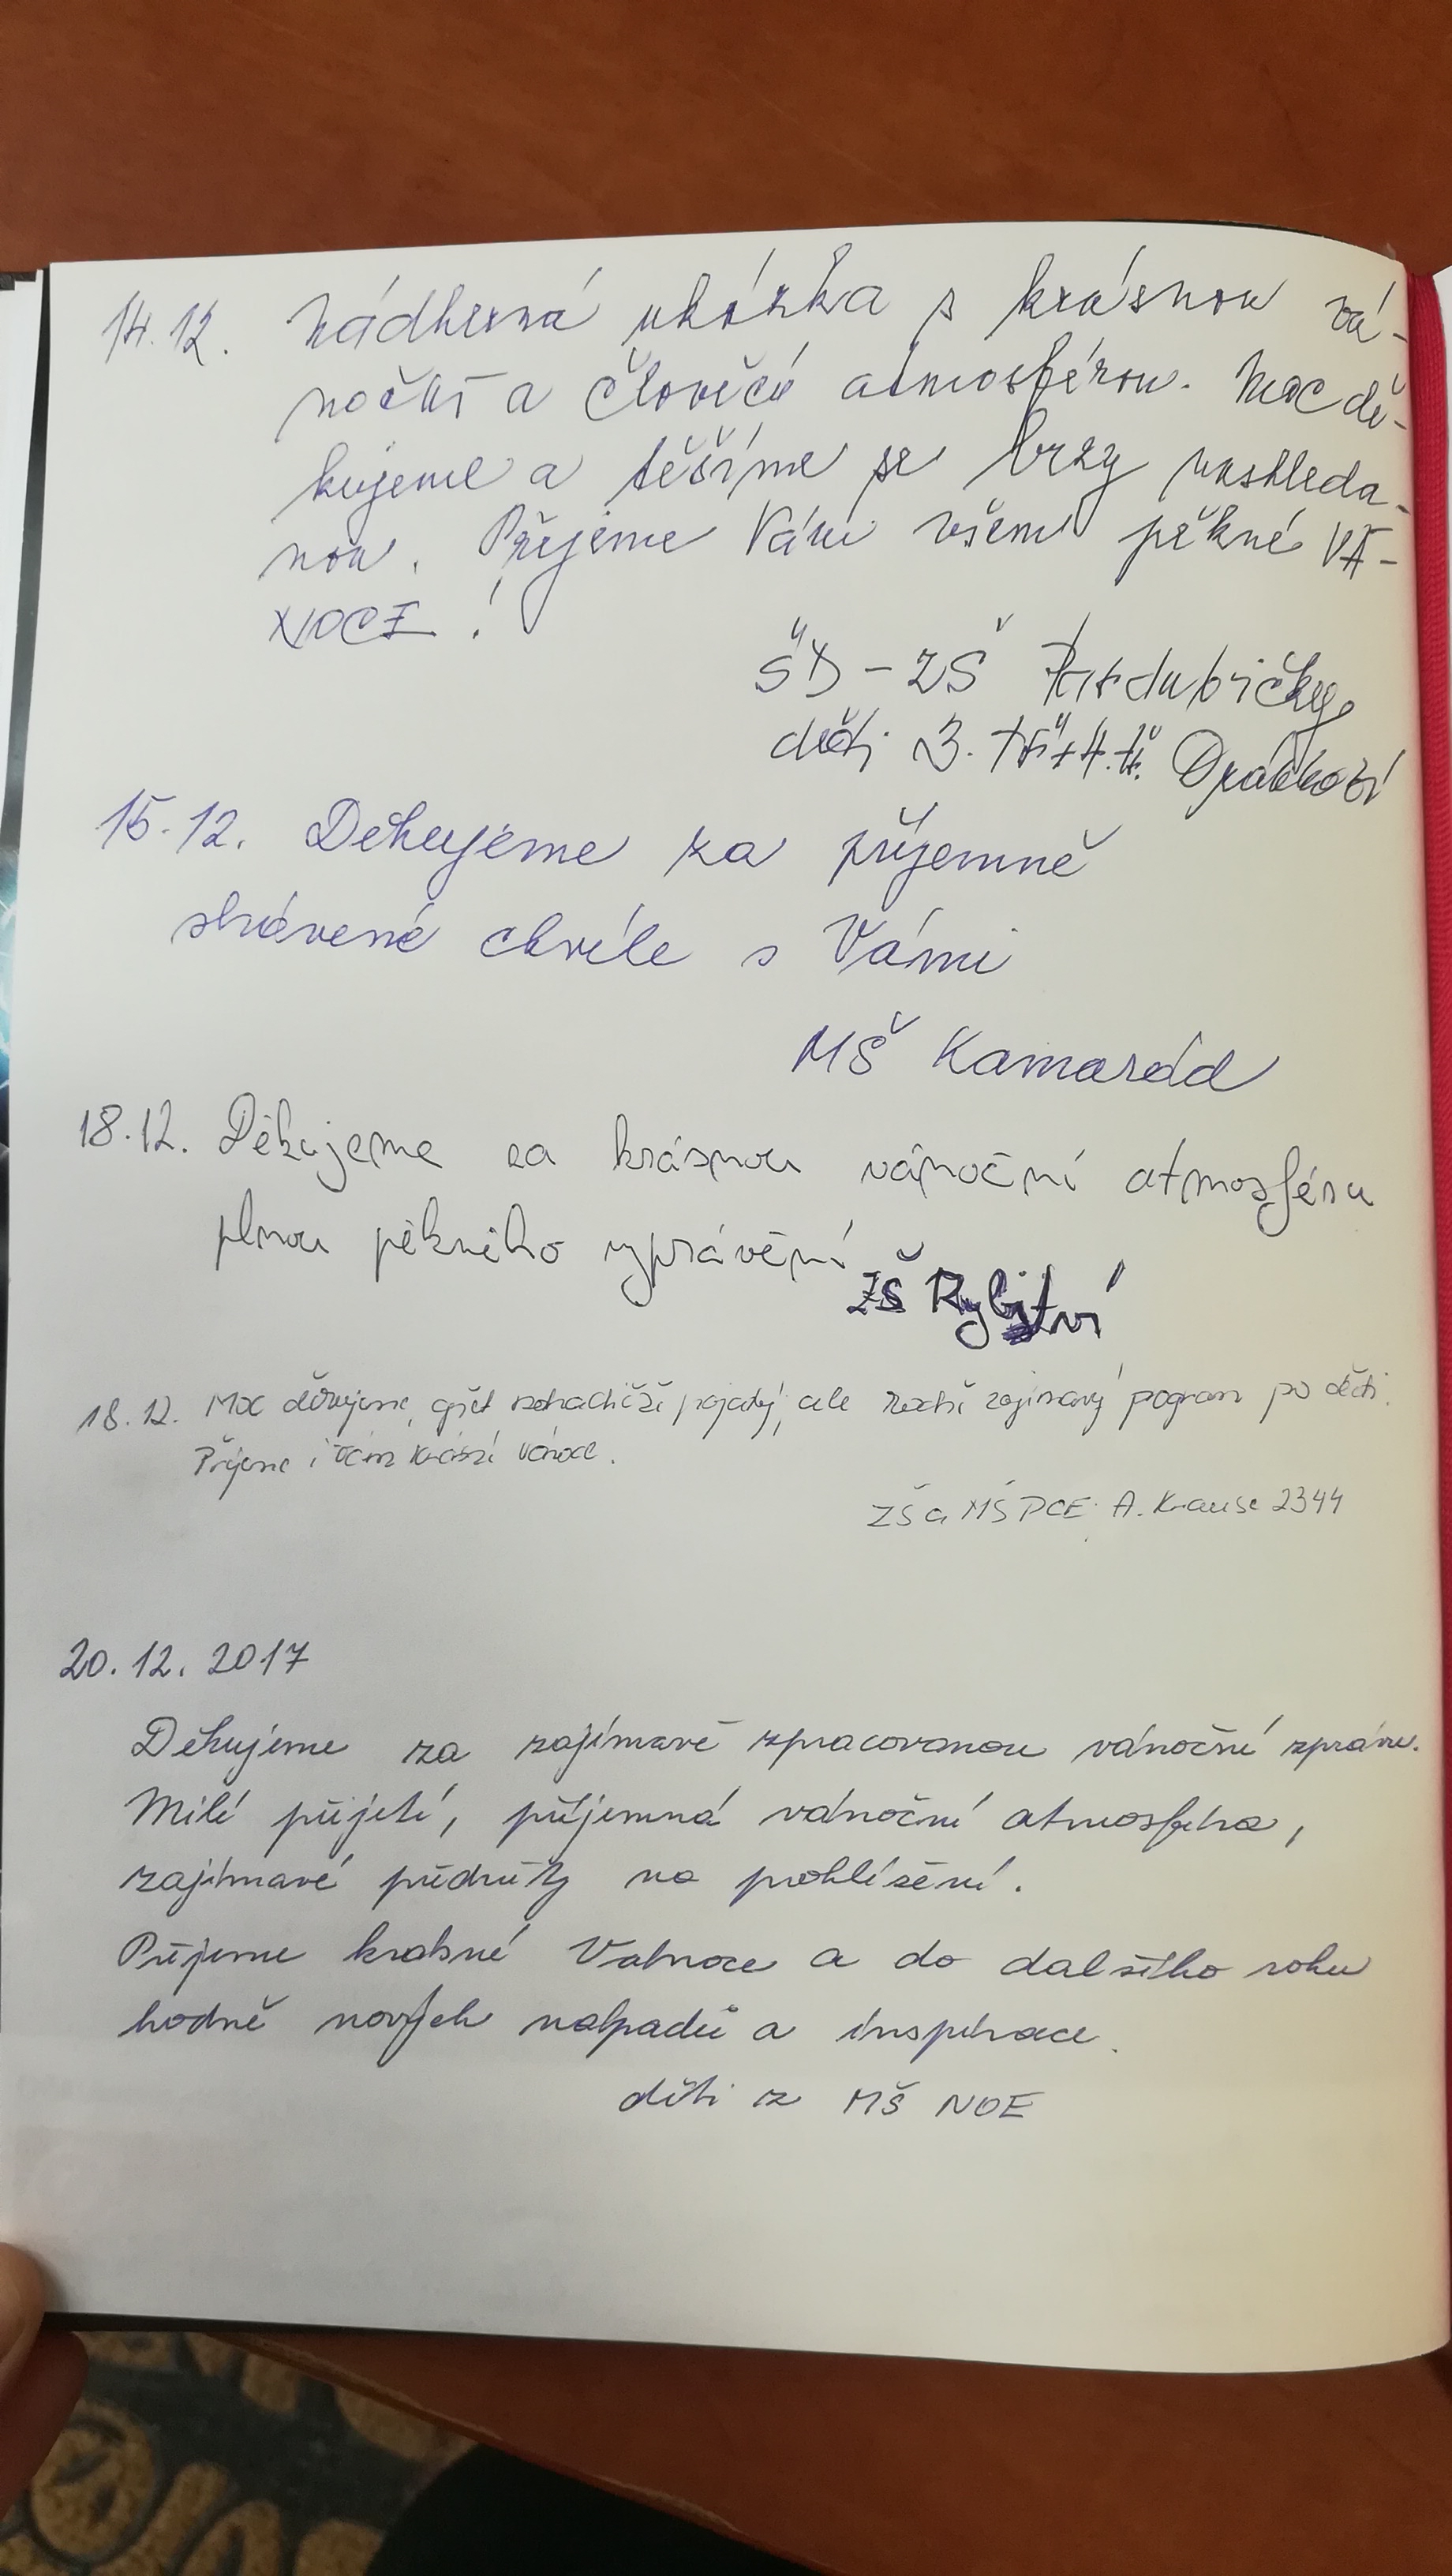 14.12. Nádherná ukázka s krásnou vá-
noční a človčěí atmosférou. Moc dě-
kujeme a těšíme se brzy nashleda-
nou. Přejeme Vám všem pěkné VÁ-
NOCE!
ŠD - ZŠ Pardubičky
děti 3. tř. + 4. tř.
15.12. Děkujeme za příjemně
strávené chvíle s Vámi
MŠ Kamarád
18.12. Děkujeme za krásnou vánoční atmosféru
plnou pěkného vyprávění
ZŠ Rybitví
18.12. Moc děkujeme, opět netradičně pojatý, ale zajímavý program po děti.
Přejeme i Vám krásné vánoce.
ZŠ a MŠ PCE, A. Krause 2344
20.12. 2017
Děkujeme za zajímavě zpracovanou vánoční zprávu.
Milé přijetí, příjemná vánoční atmosféra,
zajímavé předměty na pohlížení.
Přejeme krásné Vánoce a do dalšího roku
hodně nových nápadů a inspirace.
děti z MŠ NOE